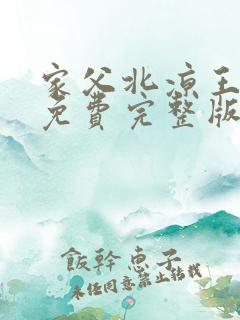 家父北凉王
免費完整版
飯幹惠子
未经同意禁止转载